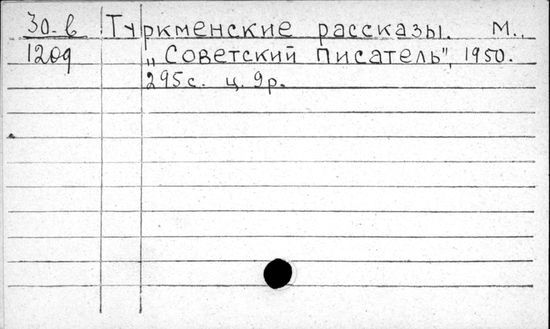 30-в Туркменские рассказы. М.,
1209 „Советский писатель", 1950.
295с. ц. 9р.